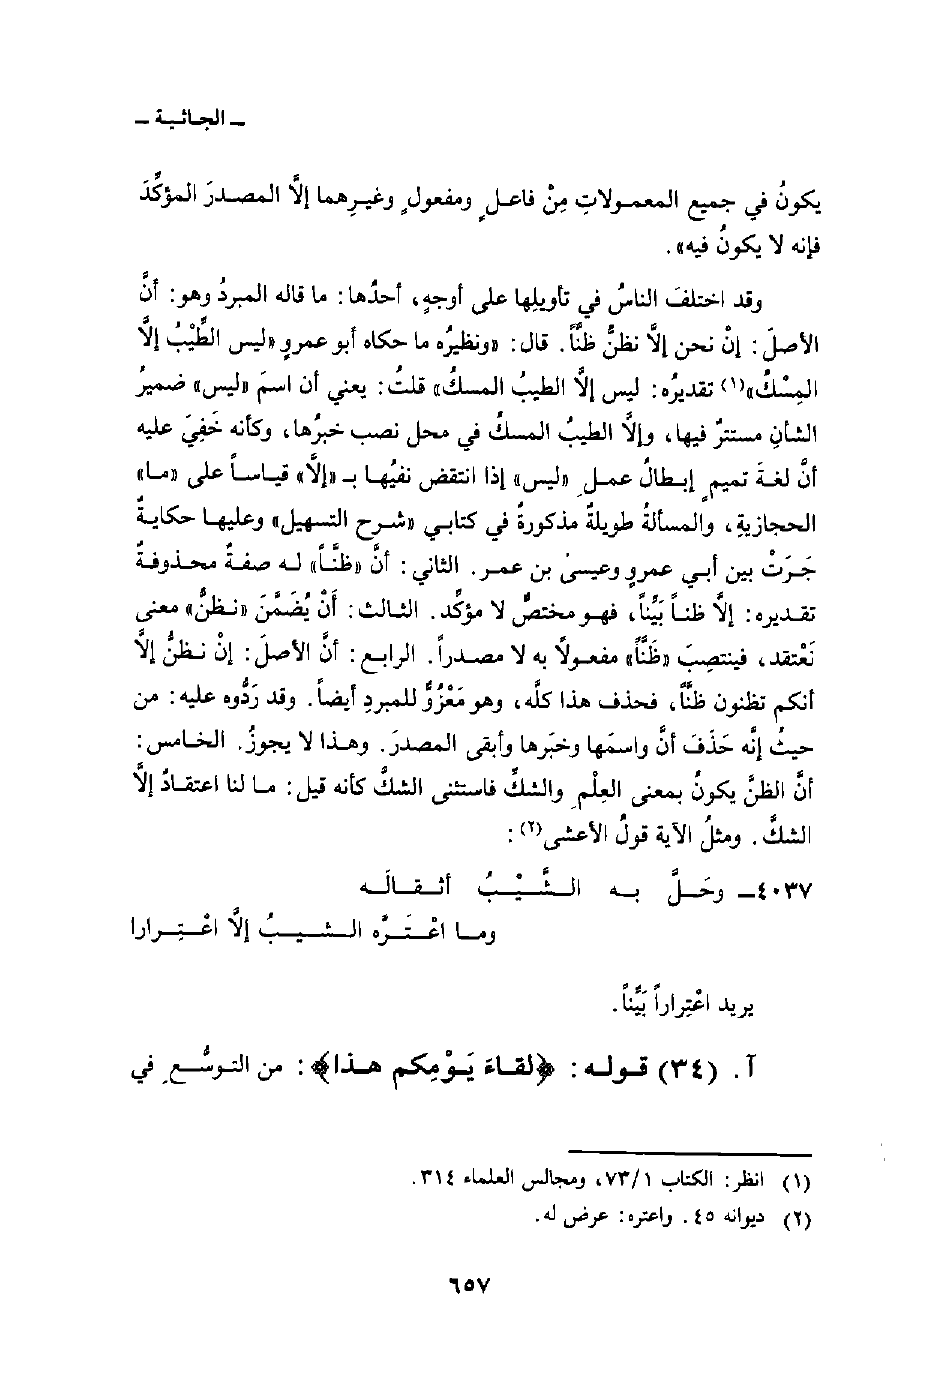 ـ الجاثية ـ
يكونُ في جميع المعمولاتِ مِنْ فاعلٍ ومفعولٍ وغيرِهما إلاَّ المصدرَ المؤكِّدَ
فإنه لا يكونُ فيه».
وقد اختلفَ الناسُ في تأويلِها على أوجهٍ، أحدُها: ما قاله المبردُ وهو: أنَّ
الأصلَ: إنْ نحن إلاَّ نظنُّ ظنَّاً. قال: «ونظيرُه ما حكاه أبو عمروٍ «ليس الطِّيْبُ إلاَّ
المِسْكُ»(١) تقديرُه: ليس إلاَّ الطيبُ المسكُ» قلتُ: يعني أن اسمَ «ليس» ضميرُ
الشأنِ مستترٌ فيها، وإلاَّ الطيبُ المسكُ في محل نصب خبرُها، وكأنه خَفِيَ عليه
أنَّ لغةَ تميمٍ إبطالُ عملِ «ليس» إذا انتقض نفيُها بـ «إلاَّ» قياساً على «ما»
الحجازيةِ، والمسألةُ طويلةٌ مذكورةٌ في كتابي «شرح التسهيل» وعليها حكايةٌ
جَرَتْ بين أبي عمروٍ وعيسىٰ بن عمر. الثاني: أنَّ «ظنَّاً» له صفةٌ محذوفةٌ
تقديره: إلاَّ ظناً بَيِّناً، فهو مختصٌّ لا مؤكِّد. الثالث: أَنْ يُضَمَّنَ «نظنُّ» معنى
نَعْتقد، فينتصِبَ «ظَنَّاً» مفعولاً به لا مصدراً. الرابع: أنَّ الأصلَ: إنْ نظنُّ إلاَّ
أنكم تظنون ظنَّاً، فحذف هذا كلَّه، وهو مَعْزُوٌّ للمبردِ أيضاً. وقد رَدُّوه عليه: من
حيثُ إنَّه حَذَفَ أنَّ واسمَها وخبرَها وأبقى المصدرَ. وهذا لا يجوزُ. الخامس:
أنَّ الظنَّ يكونُ بمعنى العِلْمِ والشكِّ فاستثنى الشكَّ كأنه قيل: ما لنا اعتقادٌ إلاَّ
الشكَّ. ومثلُ الآية قولُ الأعشى(٢):
٤٠٣٧ـ وحَلَّ به الشَّيْبُ أثقالَه
وما اعْتَرَّه الشيبُ إلاَّ اعْتِرارا
يريد اعْتِراراً بَيِّناً.
آ. (٣٤) قوله: ﴿لقاءَ يَوْمِكم هذا﴾: من التوسُّعِ في
(١) انظر: الكتاب ٧٣/١، ومجالس العلماء ٣١٤.
(٢) ديوانه ٤٥. واعتره: عرض له.
٦٥٧